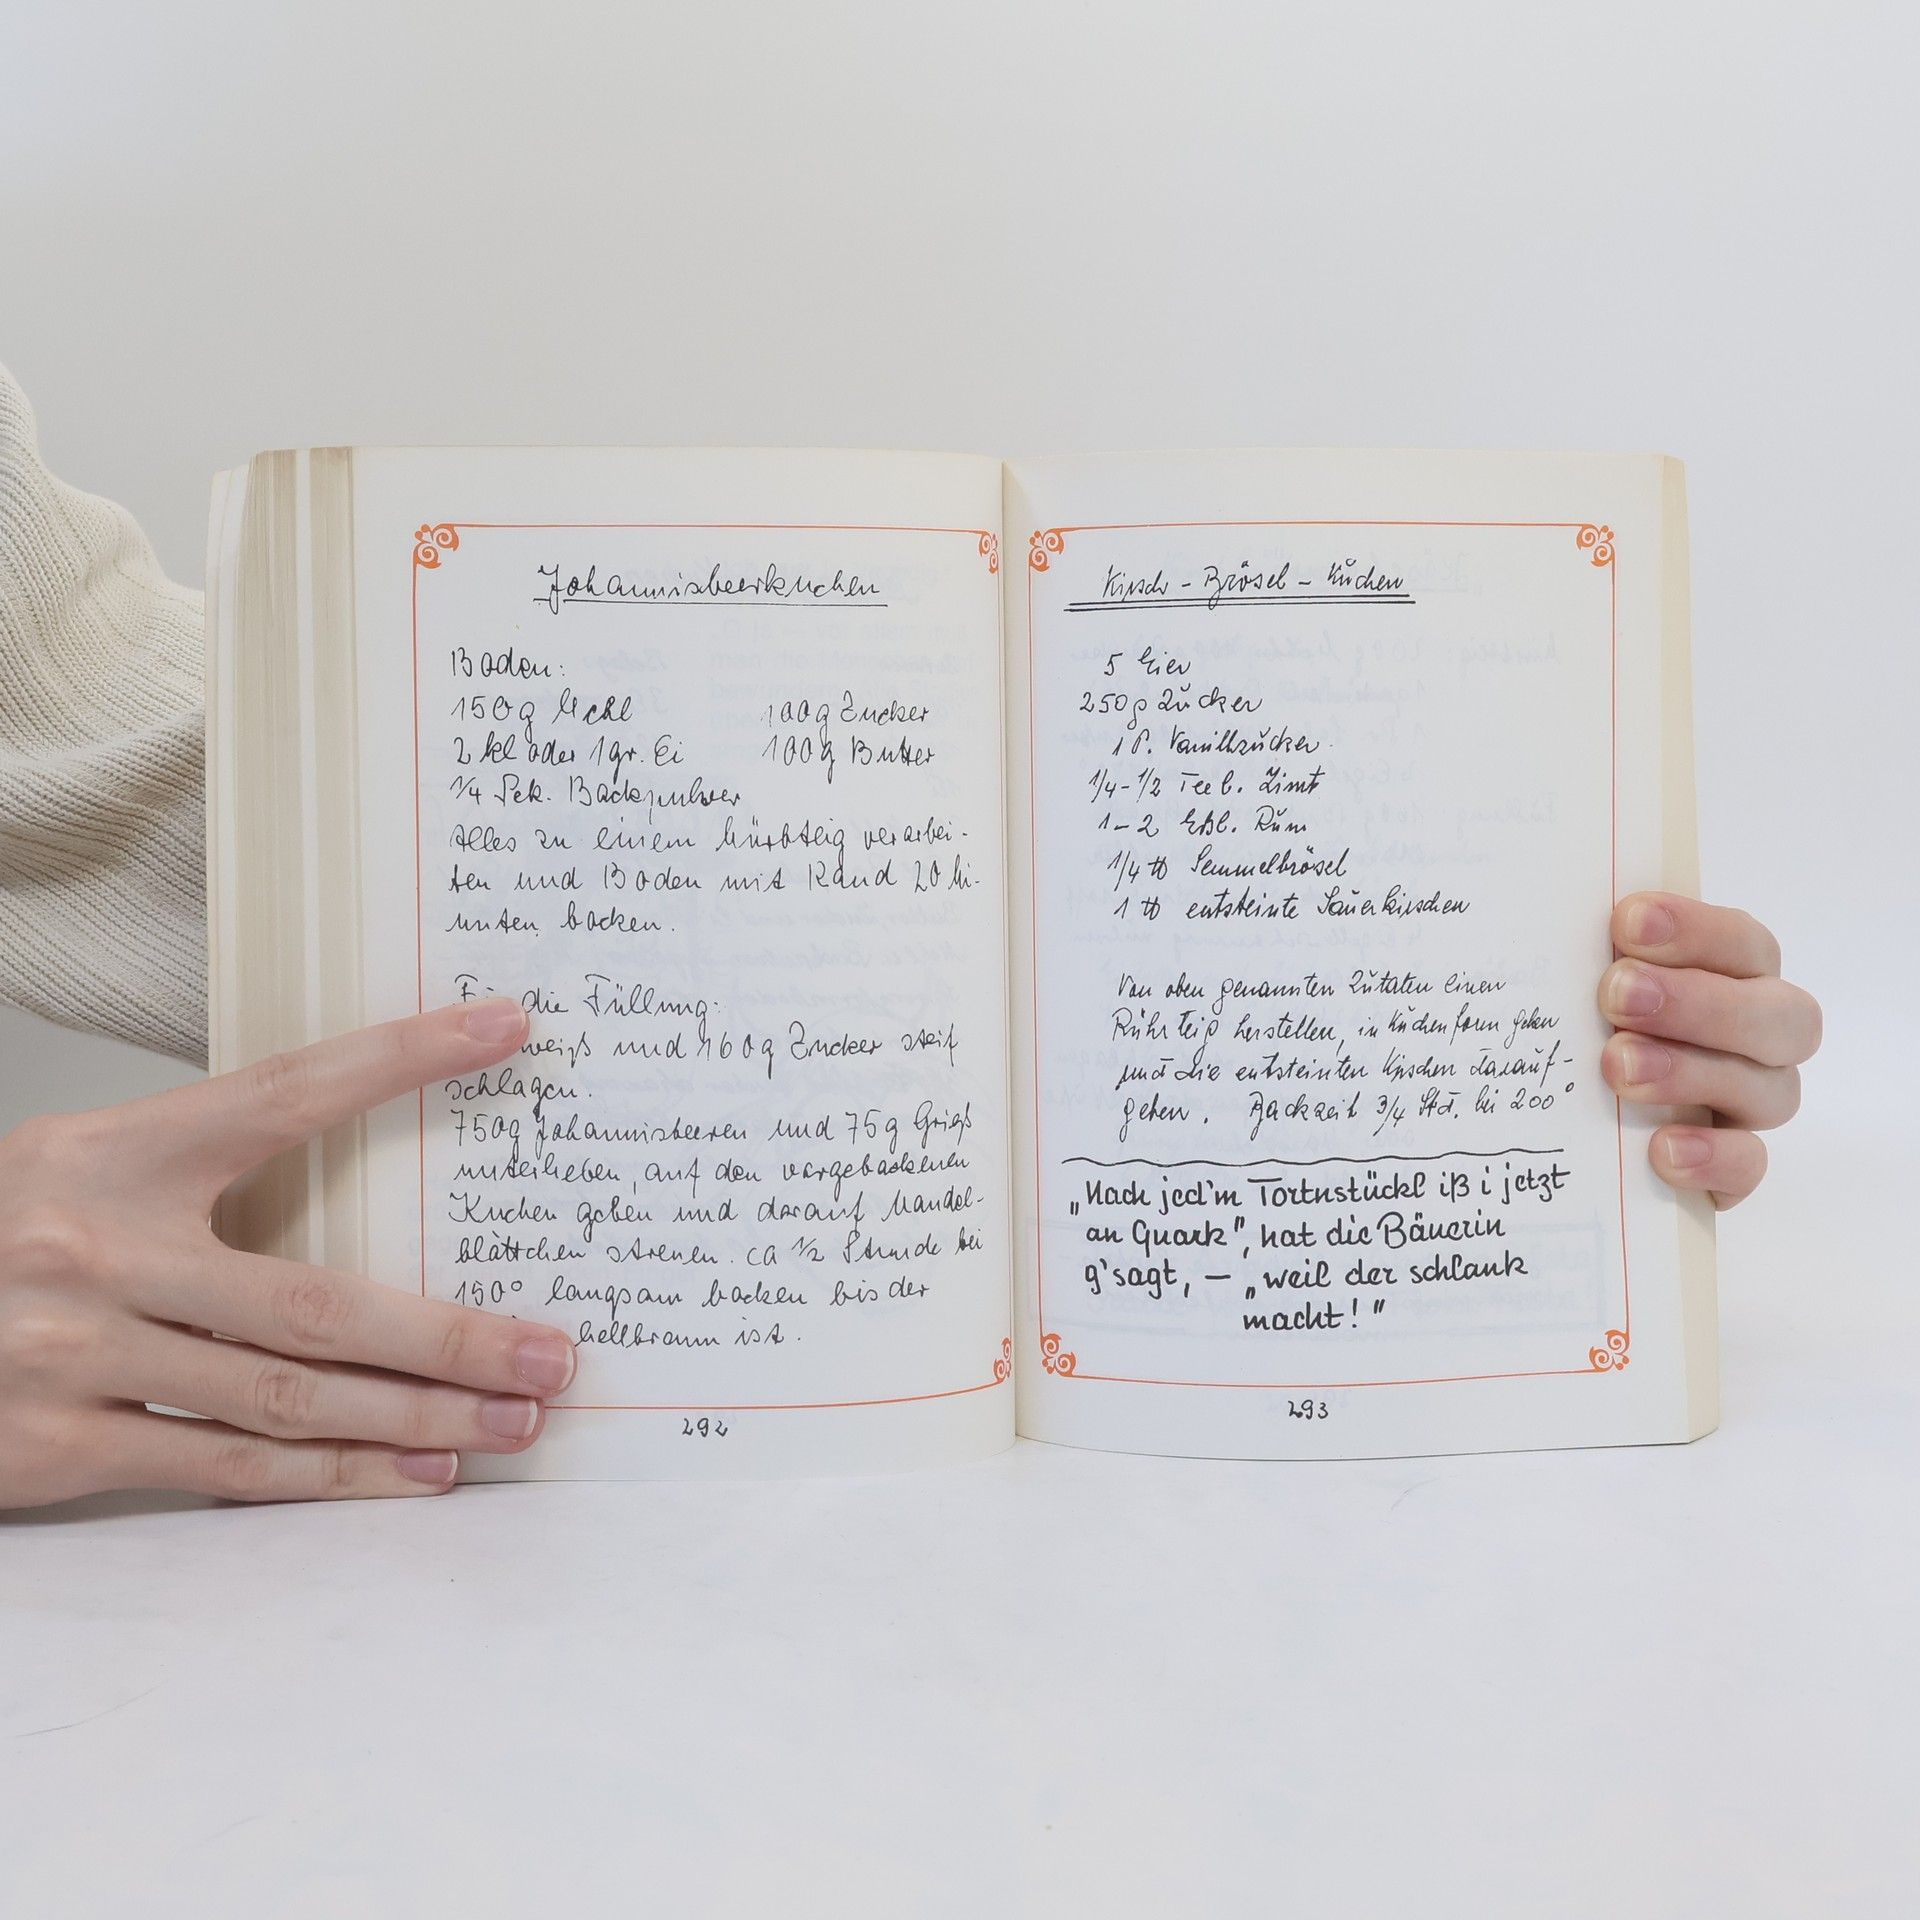 Johannisbeerkuchen
Boden:
150g Mehl 100g Zucker
2 kl oder 1gr. Ei 100g Butter
1/4 Pck. Backpulver
Alles zu einem Mürbteig verarbei-
ten und Boden mit Rand 20 Mi-
nuten backen.
die Füllung:
weiß und 160g Zucker steif
schlagen.
750g Johannisbeeren und 75g Grieß
unterheben, auf den vorgebackenen
Kuchen geben und darauf Mandel-
blättchen streuen. ca 1/2 Stunde bei
150° langsam backen bis der
hellbraun ist.
292
Kirsch - Brösel - Kuchen
5 Eier
250g Zucker
1 P. Vanillzucker.
1/4-1/2 Teel. Zimt
1-2 Eßl. Rum
1/4 ℔ Semmelbrösel
1 ℔ entsteinte Sauerkirschen
Von oben genannten Zutaten einen
Rührteig herstellen, in Kuchenform geben
und die entsteinten Kirschen darauf-
geben. Backzeit 3/4 Std. bei 200°
„Nach jed'm Tortnstückl iß i jetzt
an Quark", hat die Bäuerin
g'sagt, — „weil der schlank
macht!"
293